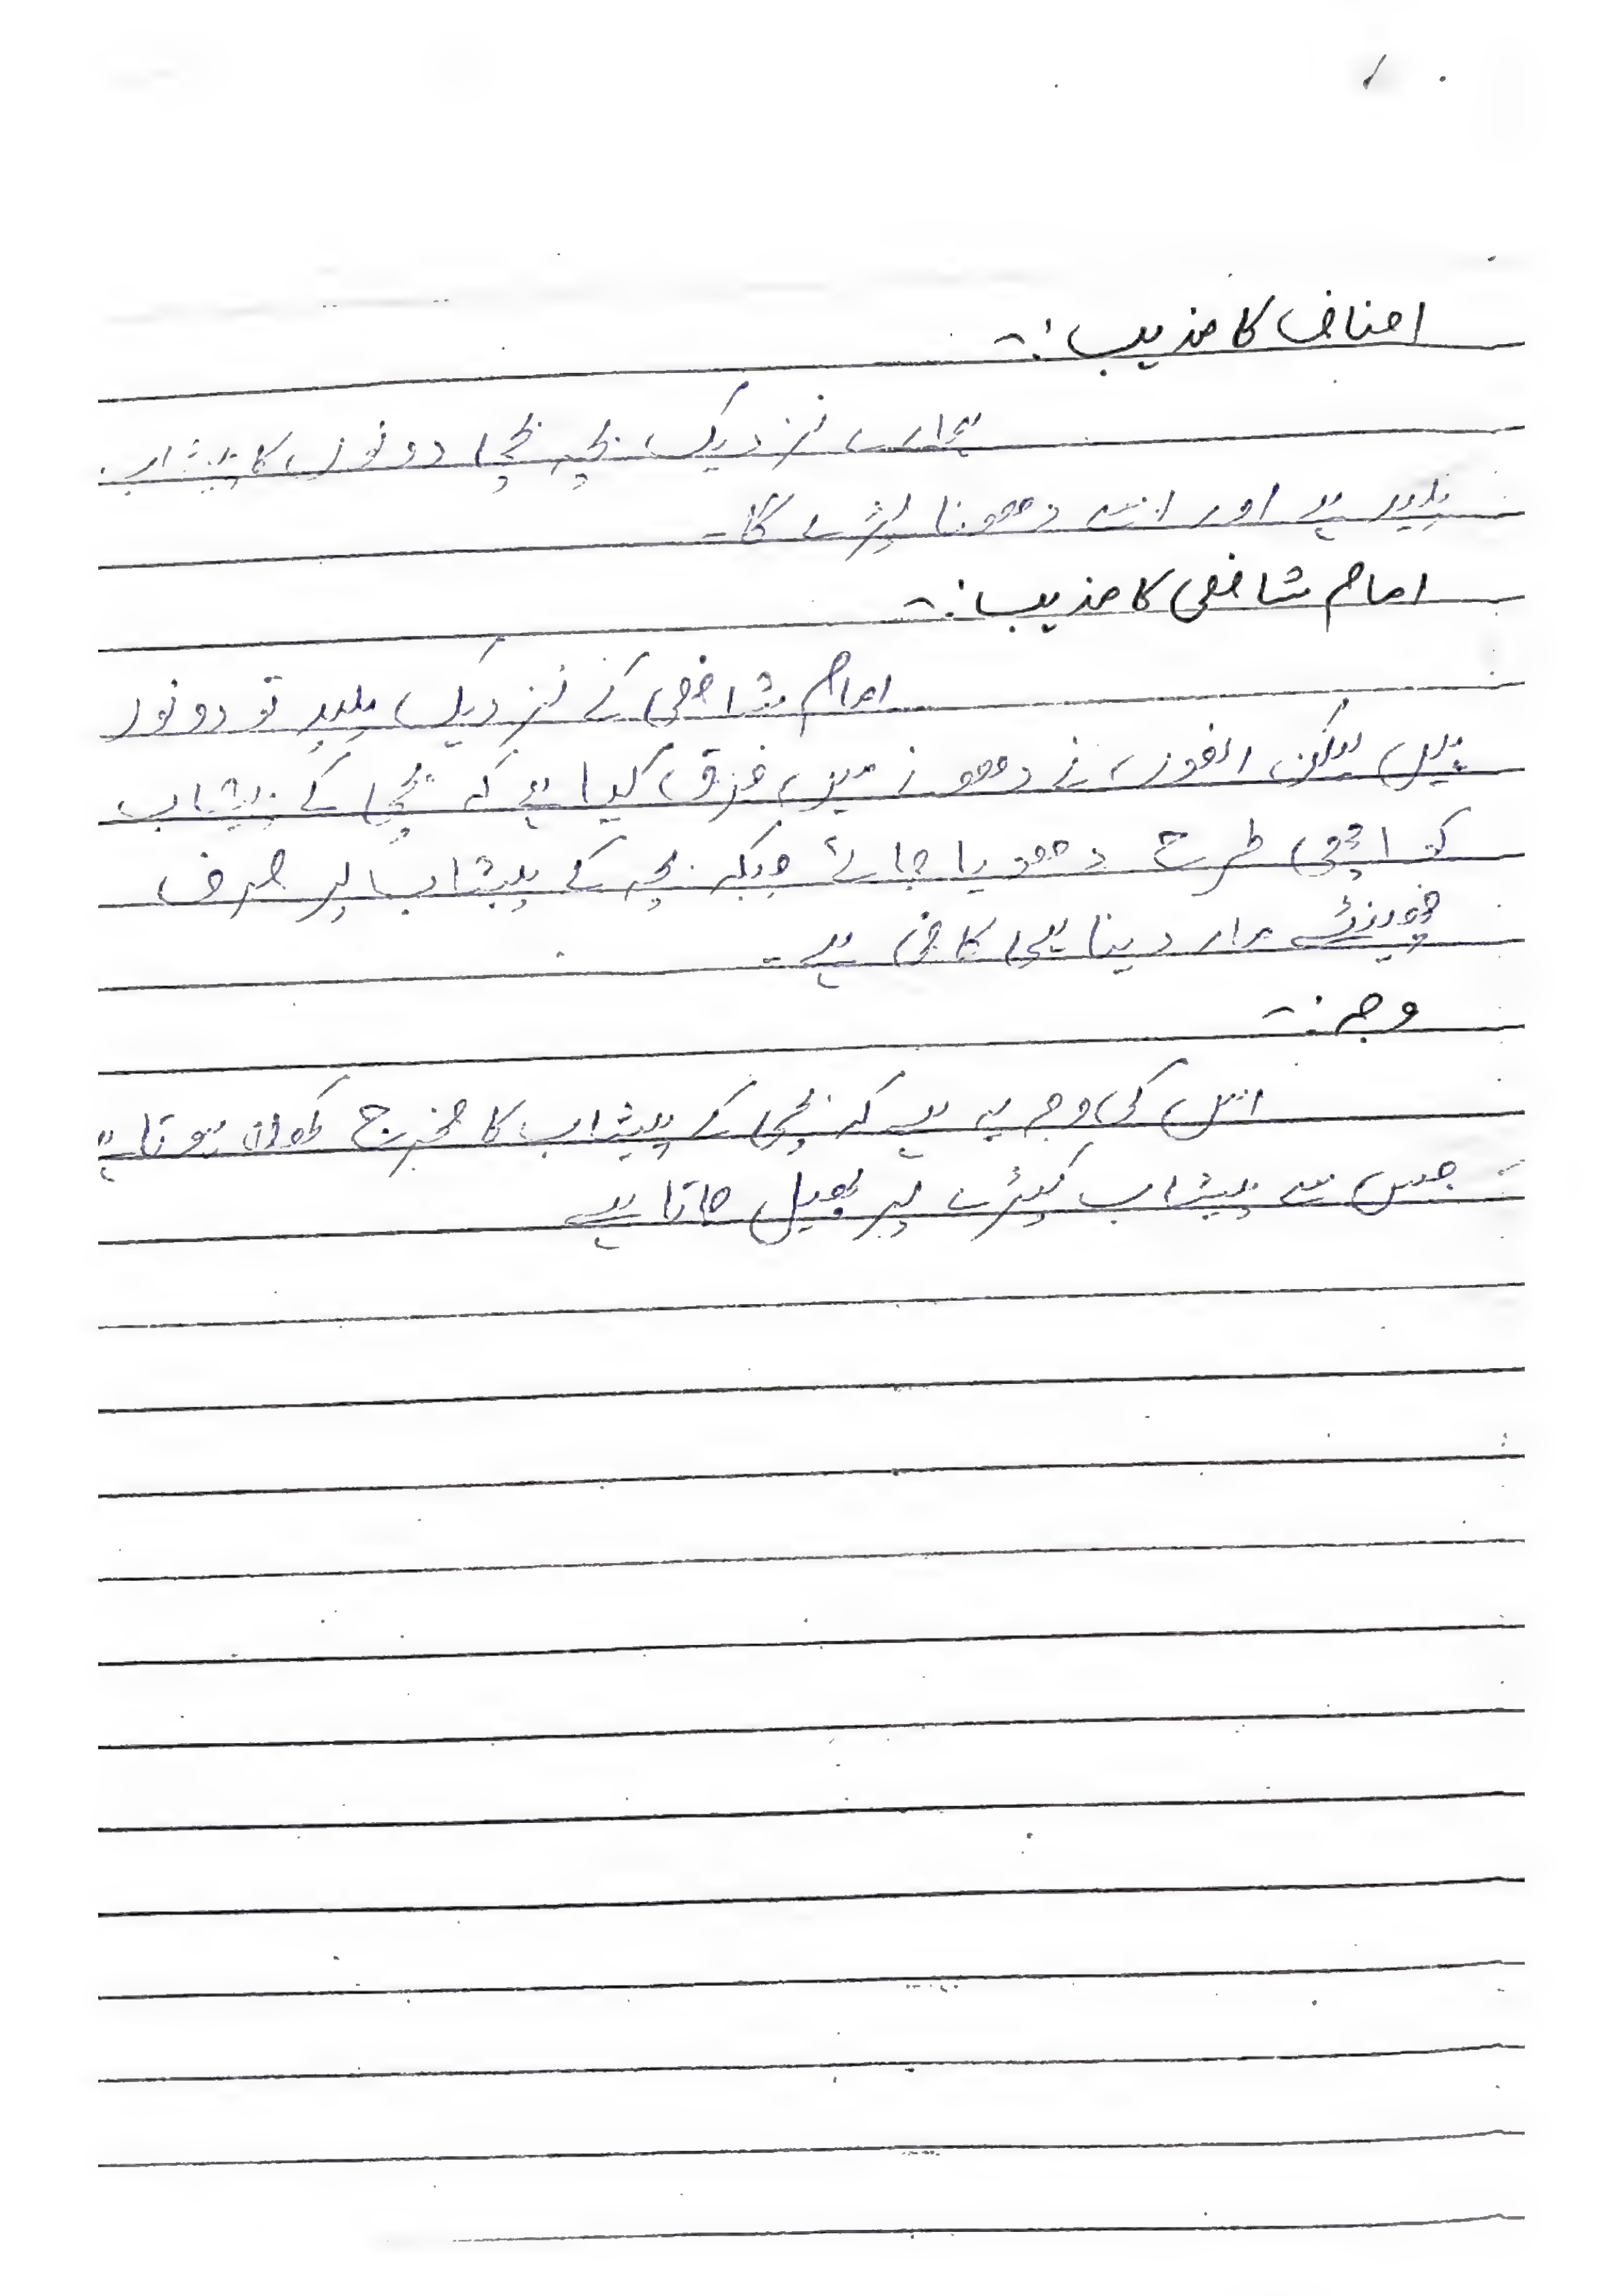 احناف کا مذہب :-
ہمارے نزدیک بچہ بچی دونوں کا پیشاب
پلید ہے اور اسے دھونا پڑے گا۔
امام شافعی کا مذہب :-
امام شافعی کے نزدیک پلید تو دونوں
ہیں لیکن انھوں نے دھونے میں فرق کیا ہے کہ بچی کے پیشاب
کو اچھی طرح دھویا جائے جبکہ بچہ کے پیشاب پر صرف
چھینٹے مار دینا ہی کافی ہے۔
وجہ :-
اس کی وجہ یہ ہے کہ بچی کے پیشاب کا مخرج کھلا ہوتا ہے
جس سے پیشاب کپڑے پر پھیل جاتا ہے